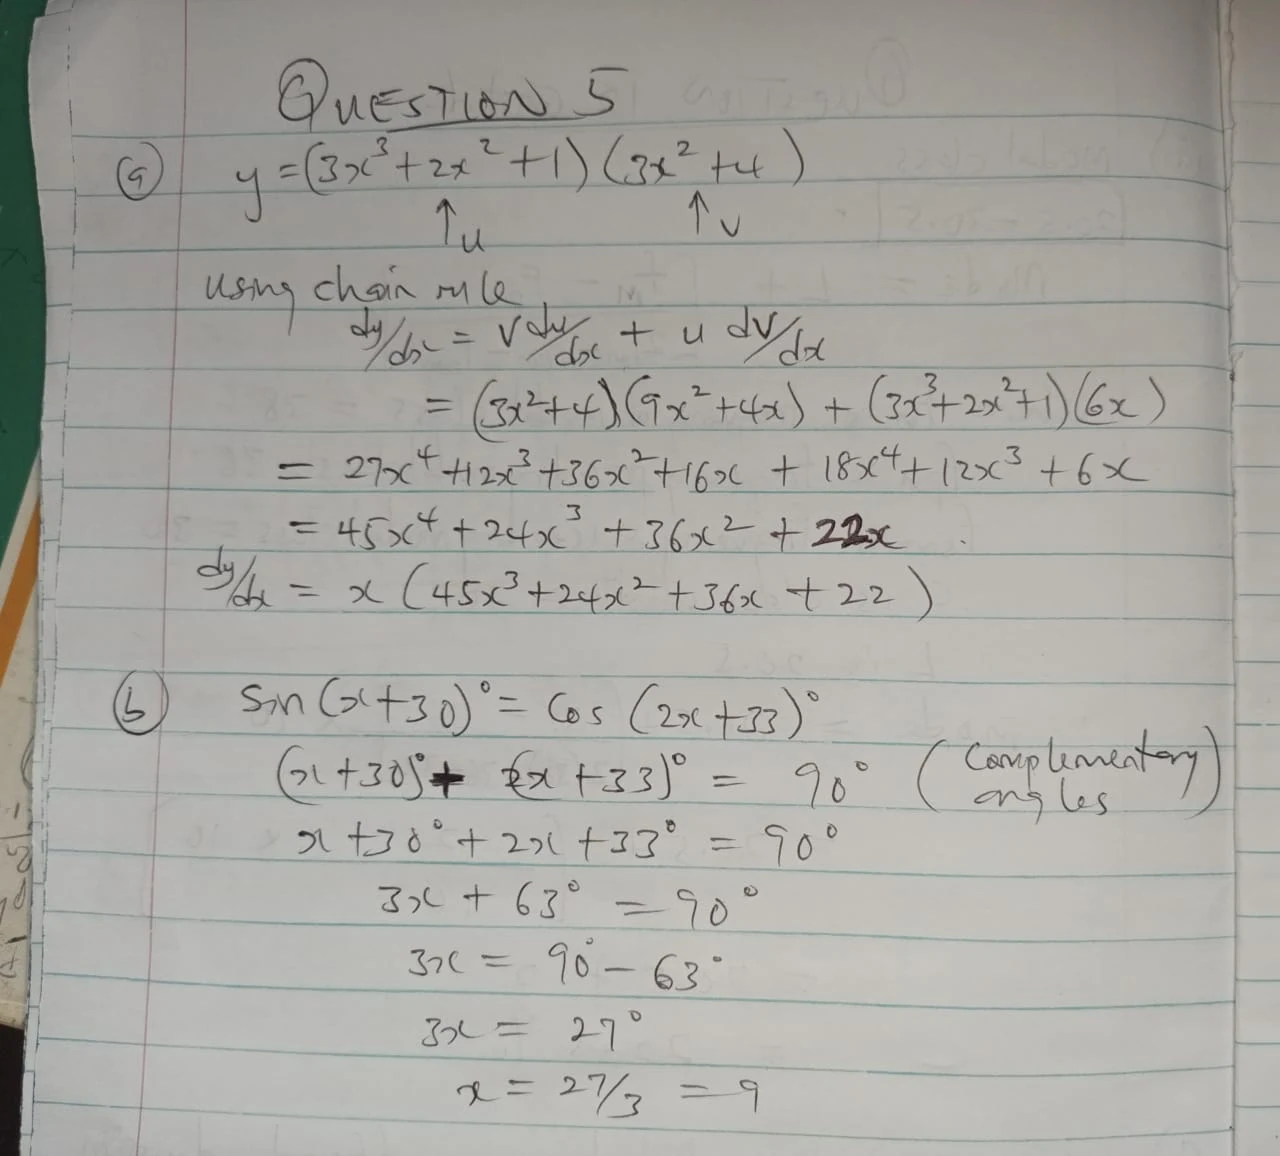 QUESTION 5
(a) y = (3x³ + 2x² + 1) (3x² + 4)
↑u ↑v
using chain rule,
dy/dx = v du/dx + u dv/dx
= (3x² + 4)(9x² + 4x) + (3x³ + 2x² + 1)(6x)
= 27x⁴ + 12x³ + 36x² + 16x + 18x⁴ + 12x³ + 6x
= 45x⁴ + 24x³ + 36x² + 22x
dy/dx = x (45x³ + 24x² + 36x + 22)
(b) Sin (x + 30)° = Cos (2x + 33)°
(x + 30)° + (2x + 33)° = 90° (Complementary angles)
x + 30° + 2x + 33° = 90°
3x + 63° = 90°
3x = 90° - 63°
3x = 27°
x = 27/3 = 9